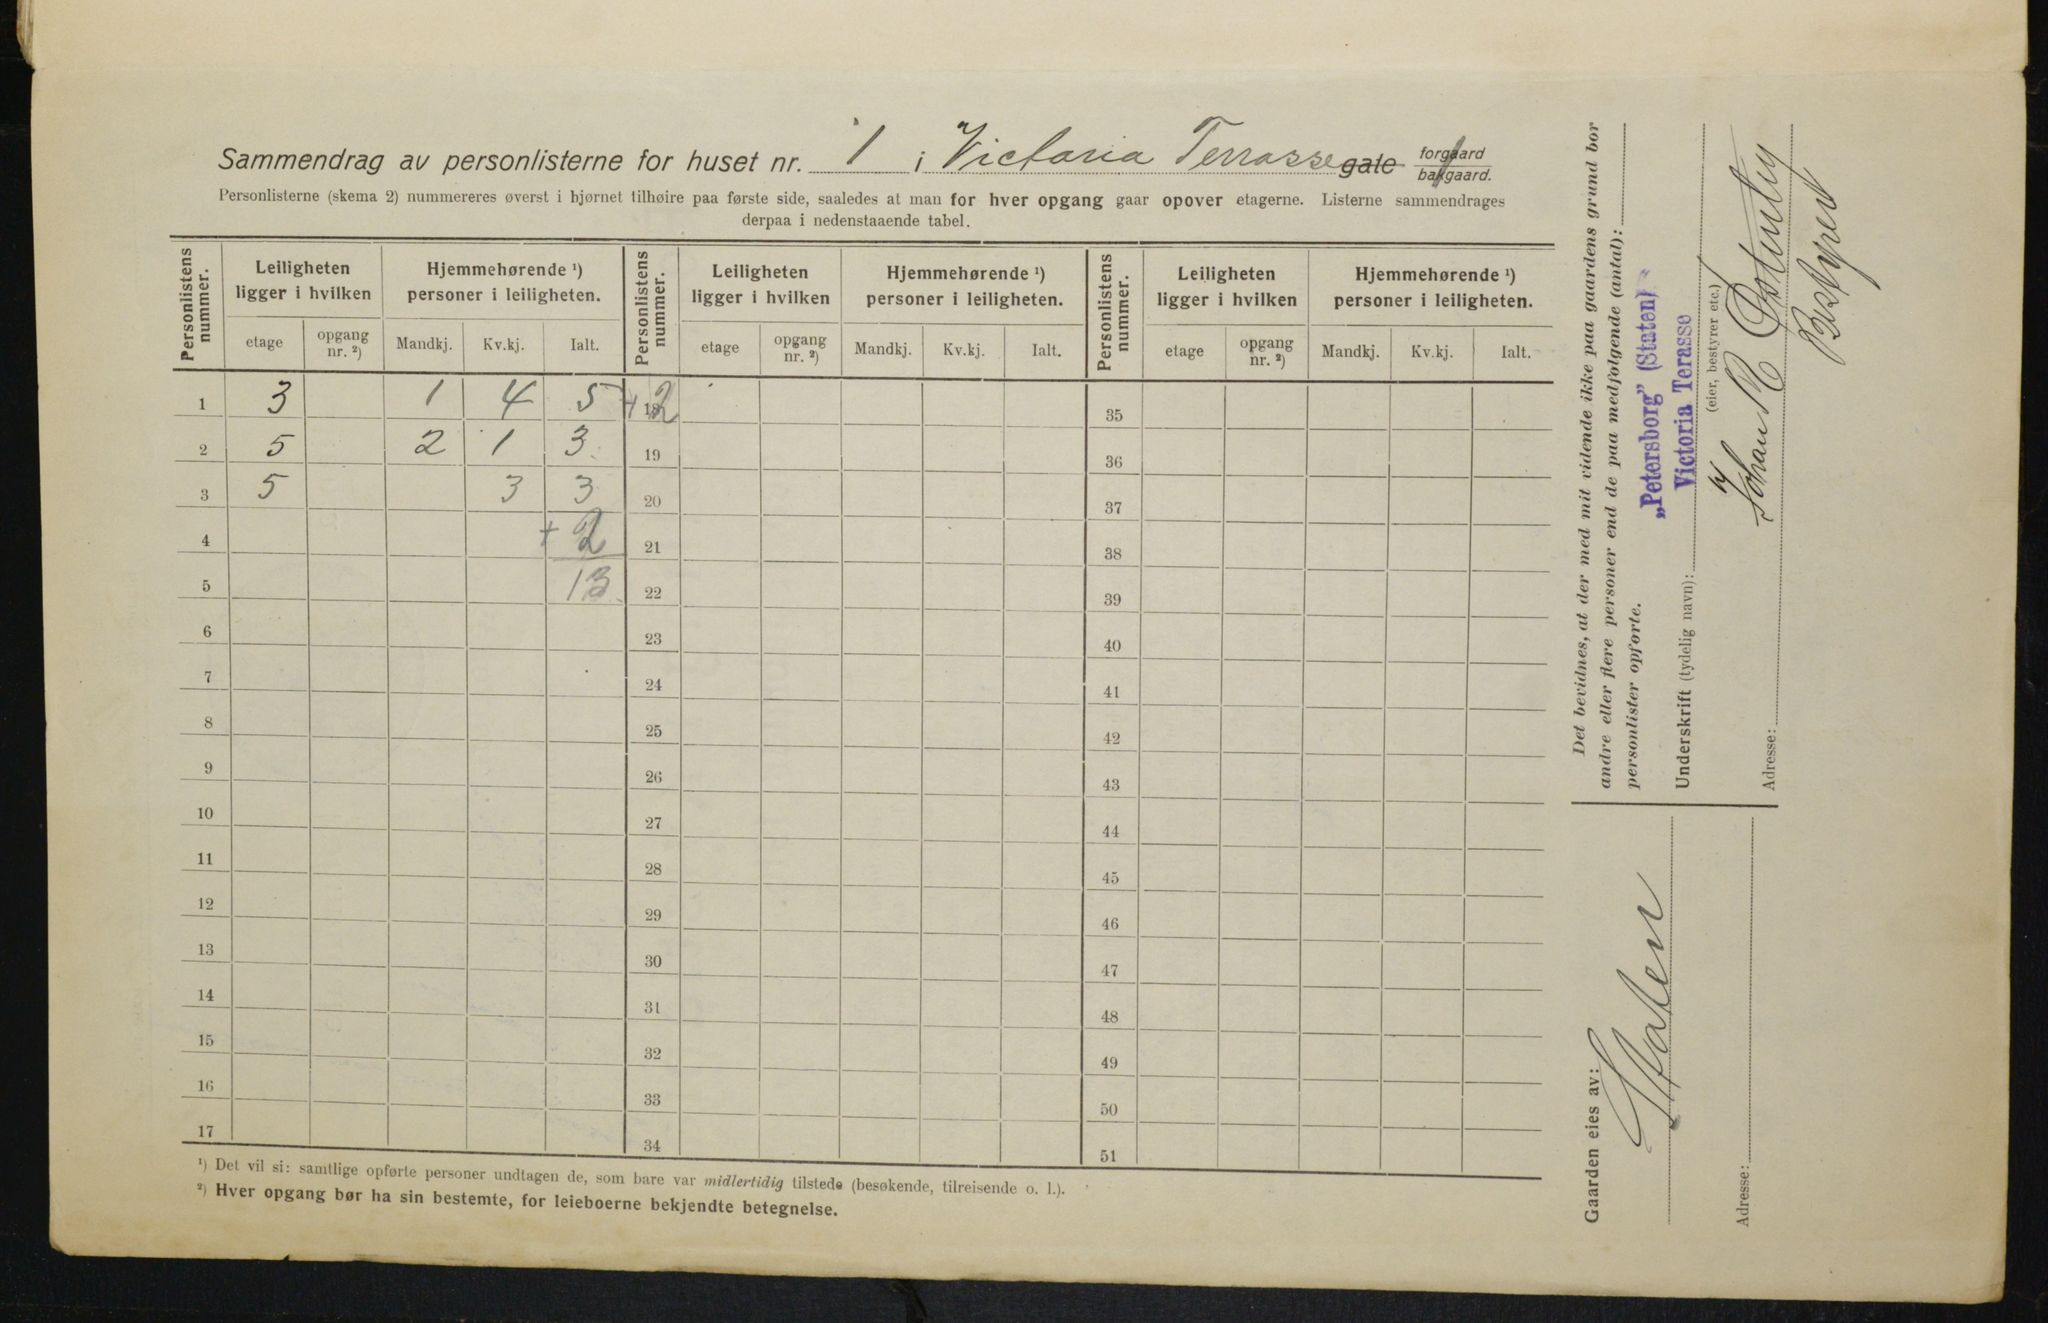 Sammendrag av personlisterne for huset nr. 1 i Victoria Terrasse gate forgaard bakgaard.
Personlisterne (skema 2) nummereres øverst i hjørnet tilhøire paa første side, saaledes at man for hver opgang gaar opover etagerne. Listerne sammendrages
derpaa i nedenstaaende tabel.
Personlistens nummer. Leiligheten ligger i hvilken Hjemmehørende ¹) personer i leiligheten. Personlistens nummer. Leiligheten ligger i hvilken Hjemmehørende ¹) personer i leiligheten. Personlistens nummer. Leiligheten ligger i hvilken Hjemmehørende ¹) personer i leiligheten.
etage opgang nr. ²) Mandkj. Kv.kj. Ialt. etage opgang nr. ²) Mandkj. Kv.kj. Ialt. etage opgang nr. ²) Mandkj. Kv.kj. Ialt.
1 3 1 4 5 +2 18 35
2 5 2 1 3 19 36
3 5 3 3 20 37
4 + 2 21 38
5 13 22 39
6 23 40
7 24 41
8 25 42
9 26 43
10 27 44
11 28 45
12 29 46
13 30 47
14 31 48
15 32 49
16 33 50
17 34 51
¹) Det vil si: samtlige opførte personer undtagen de, som bare var midlertidig tilstede (besøkende, tilreisende o. l.).
²) Hver opgang bør ha sin bestemte, for leieboerne bekjendte betegnelse.
Det bevidnes, at der med mit vidende ikke paa gaardens grund bor
andre eller flere personer end de paa medfølgende (antal):
personlister opførte.
„Petersborg" (Staten)
Victoria Terasse
Underskrift (tydelig navn):
(eier, bestyrer etc.)
Johan R
Bestyrer
Adresse:
Gaarden eies av:
Staten
Adresse: